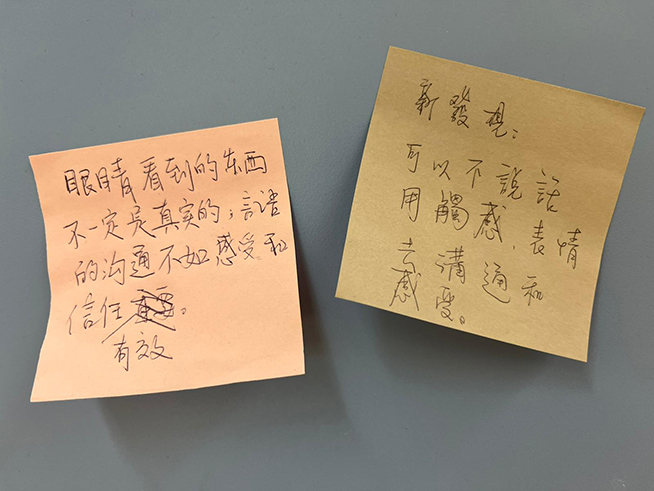 眼睛看到的东西
不一定是真实的，言语
的沟通不如感受和
信任重要。
有效
新發現：
可以不說話
用觸感、表情
去溝通和
感受。